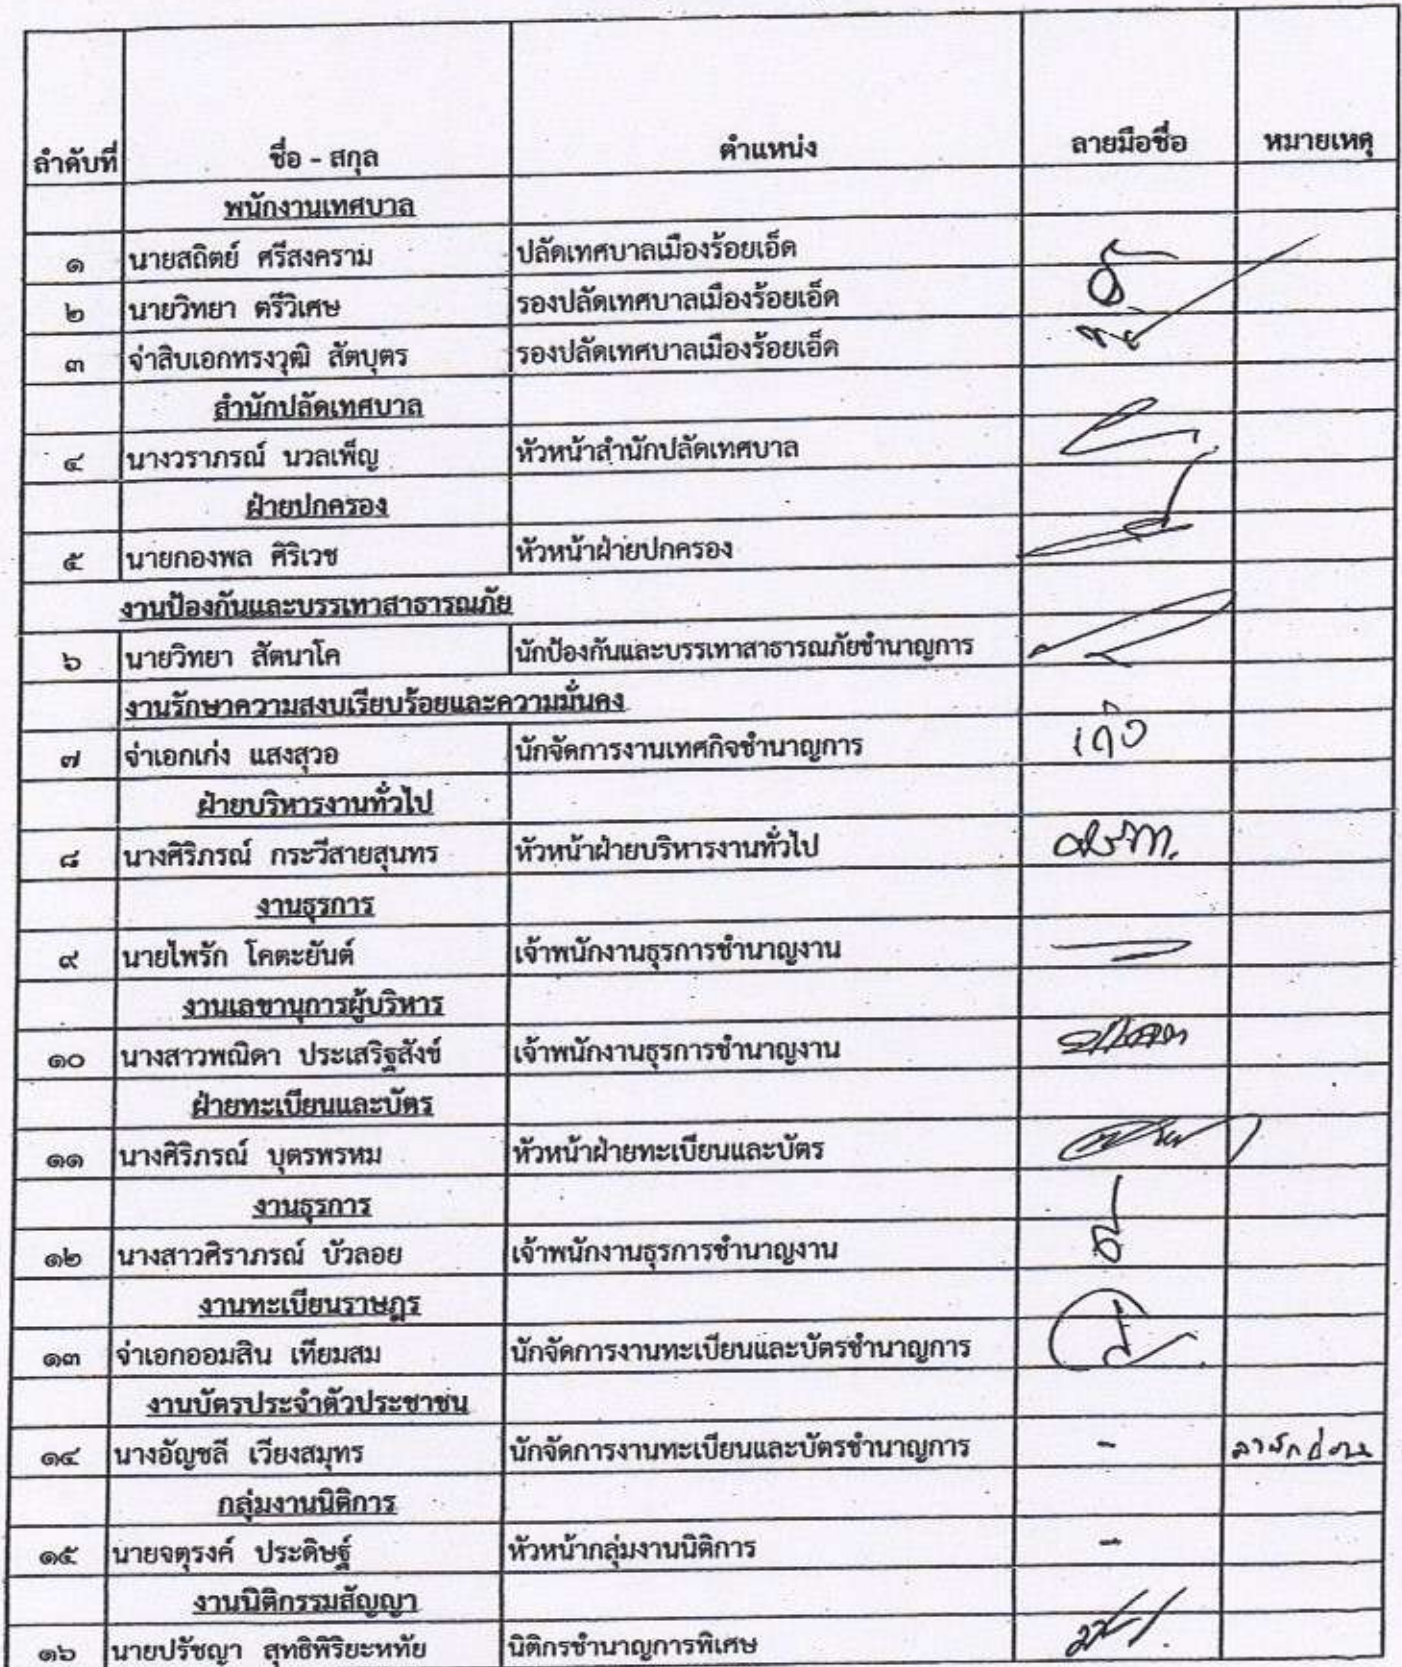 ลำดับที่ ชื่อ - สกุล ตำแหน่ง ลายมือชื่อ หมายเหตุ
พนักงานเทศบาล
๑ นายสถิตย์ ศรีสงคราม ปลัดเทศบาลเมืองร้อยเอ็ด
๒ นายวิทยา ตรีวิเศษ รองปลัดเทศบาลเมืองร้อยเอ็ด
๓ จ่าสิบเอกทรงวุฒิ สัตบุตร รองปลัดเทศบาลเมืองร้อยเอ็ด
สำนักปลัดเทศบาล
๔ นางวราภรณ์ นวลเพ็ญ หัวหน้าสำนักปลัดเทศบาล
ฝ่ายปกครอง
๕ นายกองพล ศิริเวช หัวหน้าฝ่ายปกครอง
งานป้องกันและบรรเทาสาธารณภัย
๖ นายวิทยา สัตนาโค นักป้องกันและบรรเทาสาธารณภัยชำนาญการ
งานรักษาความสงบเรียบร้อยและความมั่นคง
๗ จ่าเอกเก่ง แสงสุวอ นักจัดการงานเทศกิจชำนาญการ เก่ง
ฝ่ายบริหารงานทั่วไป
๘ นางศิริภรณ์ กระวีสายสุนทร หัวหน้าฝ่ายบริหารงานทั่วไป
งานธุรการ
๙ นายไพรัก โคตะยันต์ เจ้าพนักงานธุรการชำนาญงาน
งานเลขานุการผู้บริหาร
๑๐ นางสาวพณิดา ประเสริฐสังข์ เจ้าพนักงานธุรการชำนาญงาน
ฝ่ายทะเบียนและบัตร
๑๑ นางศิริภรณ์ บุตรพรหม หัวหน้าฝ่ายทะเบียนและบัตร
งานธุรการ
๑๒ นางสาวศิราภรณ์ บัวลอย เจ้าพนักงานธุรการชำนาญงาน
งานทะเบียนราษฎร
๑๓ จ่าเอกออมสิน เทียมสม นักจัดการงานทะเบียนและบัตรชำนาญการ
งานบัตรประจำตัวประชาชน
๑๔ นางอัญชลี เวียงสมุทร นักจัดการงานทะเบียนและบัตรชำนาญการ - ลาพักผ่อน
กลุ่มงานนิติการ
๑๕ นายจตุรงค์ ประดิษฐ์ หัวหน้ากลุ่มงานนิติการ -
งานนิติกรรมสัญญา
๑๖ นายปรัชญา สุทธิพิริยะหทัย นิติกรชำนาญการพิเศษ